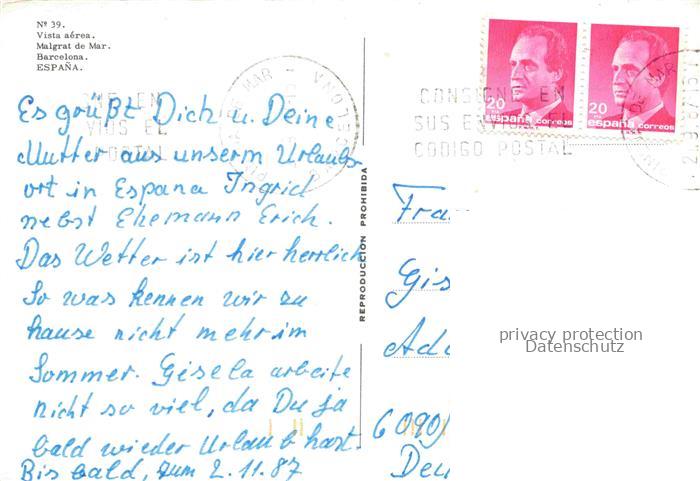 Nº 39.
Vista aérea.
Malgrat de Mar.
Barcelona.
ESPAÑA.
Es grüßt Dich u. Deine
Mutter aus unserm Urlaubs-
ort in Espana Ingrid
nebst Ehemann Erich.
Das Wetter ist hier herrlich
So was kennen wir zu
hause nicht mehr im
Sommer. Gisela arbeite
nicht so viel, da Du ja
bald wieder Urlaub hast.
Bis bald, zum 2.11.87
REPRODUCCIÓN PROHIBIDA
20
españa correos
20
españa correos
CONSIGNE EN
SUS ENVIOS EL
CODIGO POSTAL
DE MAR
BARCELONA
Fra
Gis
Ad
6090
Deu
privacy protection
Datenschutz